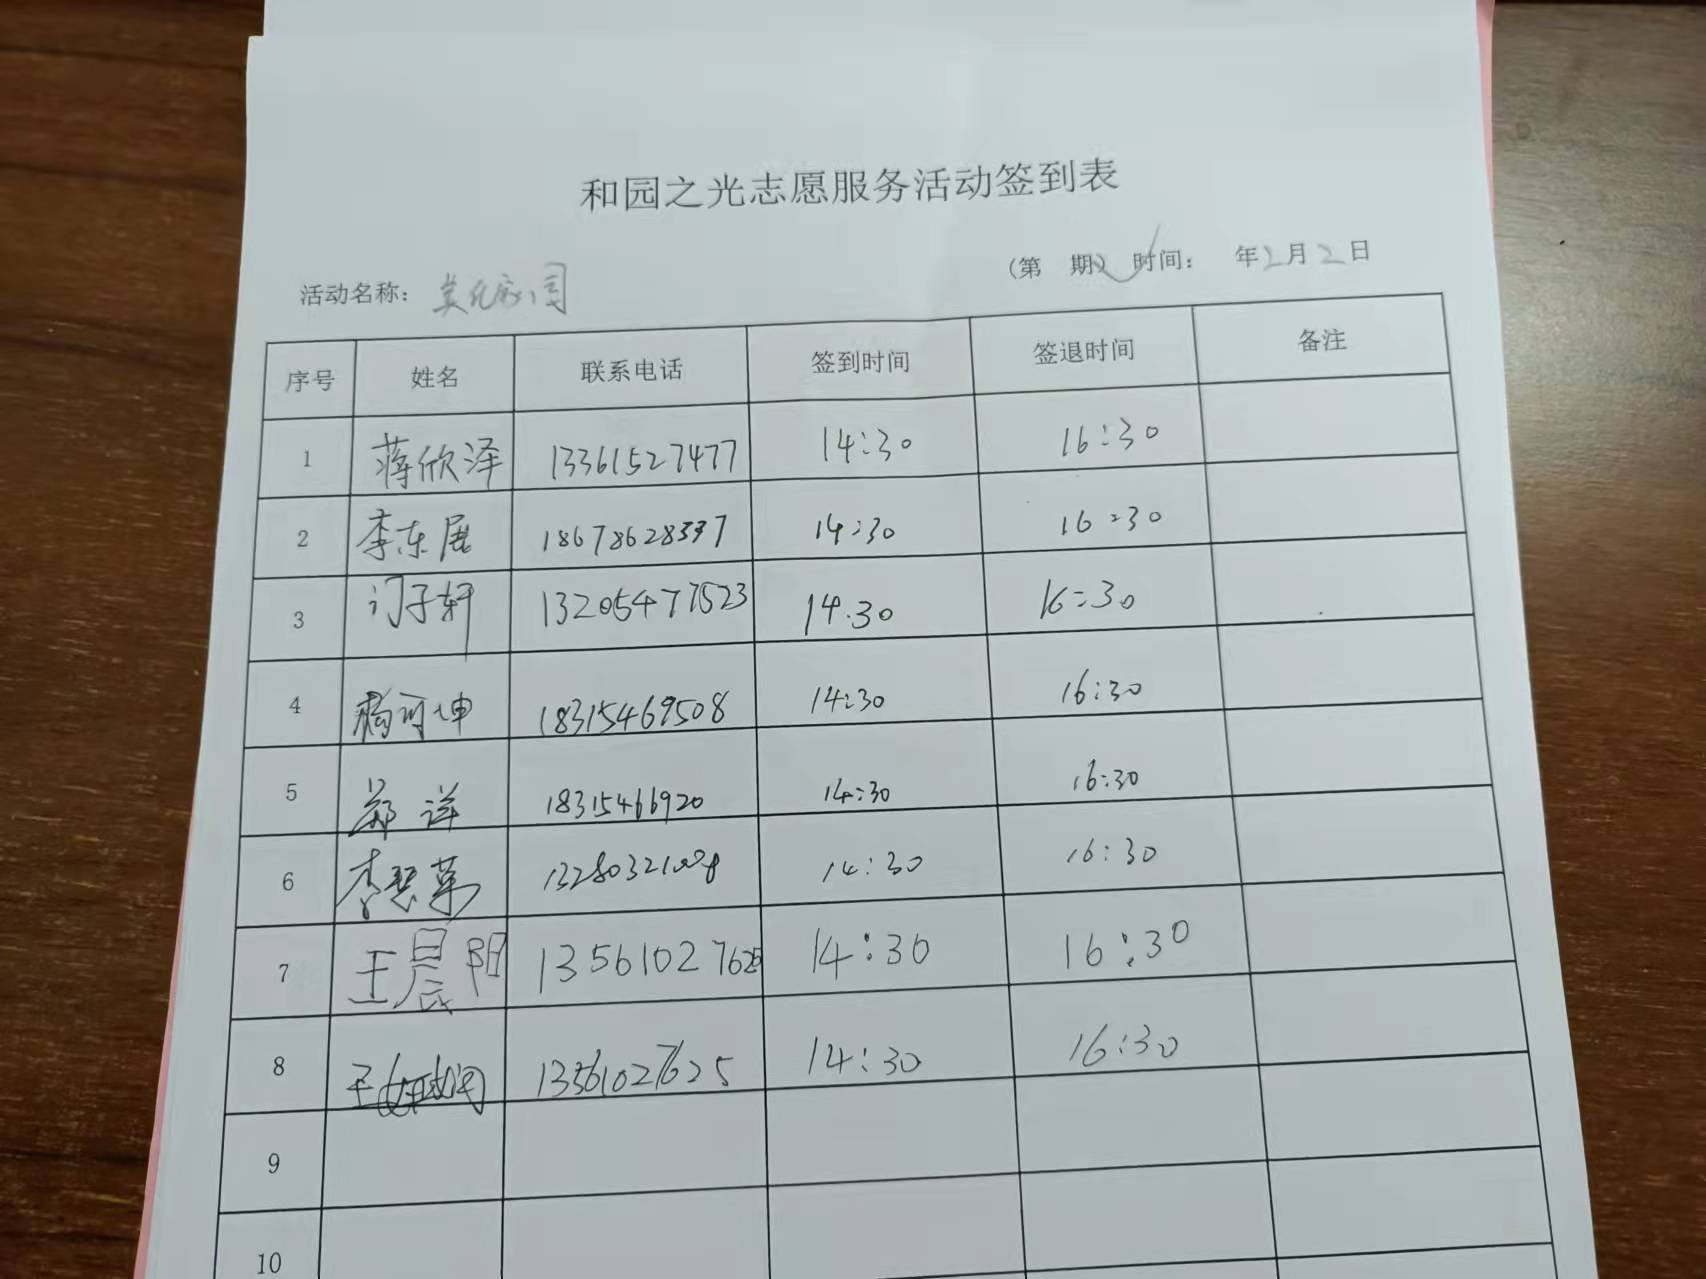 和园之光志愿服务活动签到表
(第 期) 时间: 年2月2日
活动名称: 美化家园
序号 姓名 联系电话 签到时间 签退时间 备注
1 蒋欣泽 13361527477 14:30 16:30
2 李东展 18678628337 14:30 16:30
3 门子轩 13205477523 14.30 16:30
4 杨可坤 18315469508 14:30 16:30
5 郑洋 18315466920 14:30 16:30
6 李 1328032 14:30 16:30
7 王晨阳 13561027625 14:30 16:30
8 王 13561027625 14:30 16:30
9
10